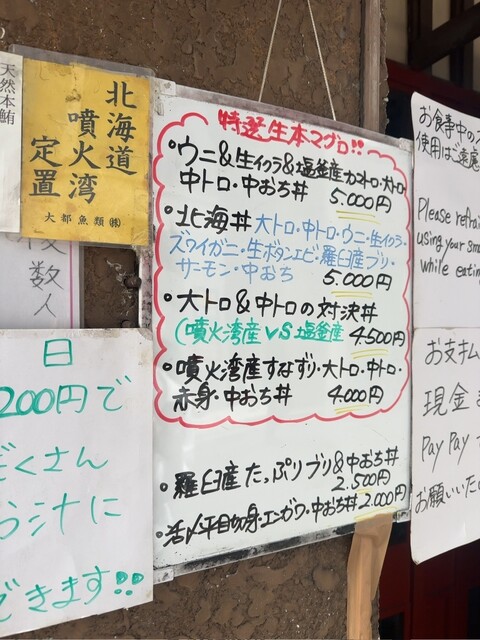 天然本鮪
北海道
噴火湾
定置
大都魚類㈱
数人
日
200円で
くさん
汁に
できます!!
特選生本マグロ!!
・ウニ&生イクラ&塩釜産カマトロ・大トロ・
中トロ・中おち丼 5.000円
・北海丼 大トロ・中トロ・ウニ・生イクラ・
ズワイガニ・生ボタンエビ・羅臼産ブリ・
サーモン・中おち 5.000円
・大トロ&中トロの対決丼
(噴火湾産 VS 塩釜産 4.500円
・噴火湾産すなずり・大トロ・中トロ・
赤身・中おち丼 4.000円
・羅臼産 たっぷりブリ&中おち丼
2.500円
・活〆平目切身・エンガワ・中おち丼 2.000円
お食事中の
使用はご遠慮
Please refrai
using your sma
while eatin
お支払
現金
Pay Pay
お願いいた